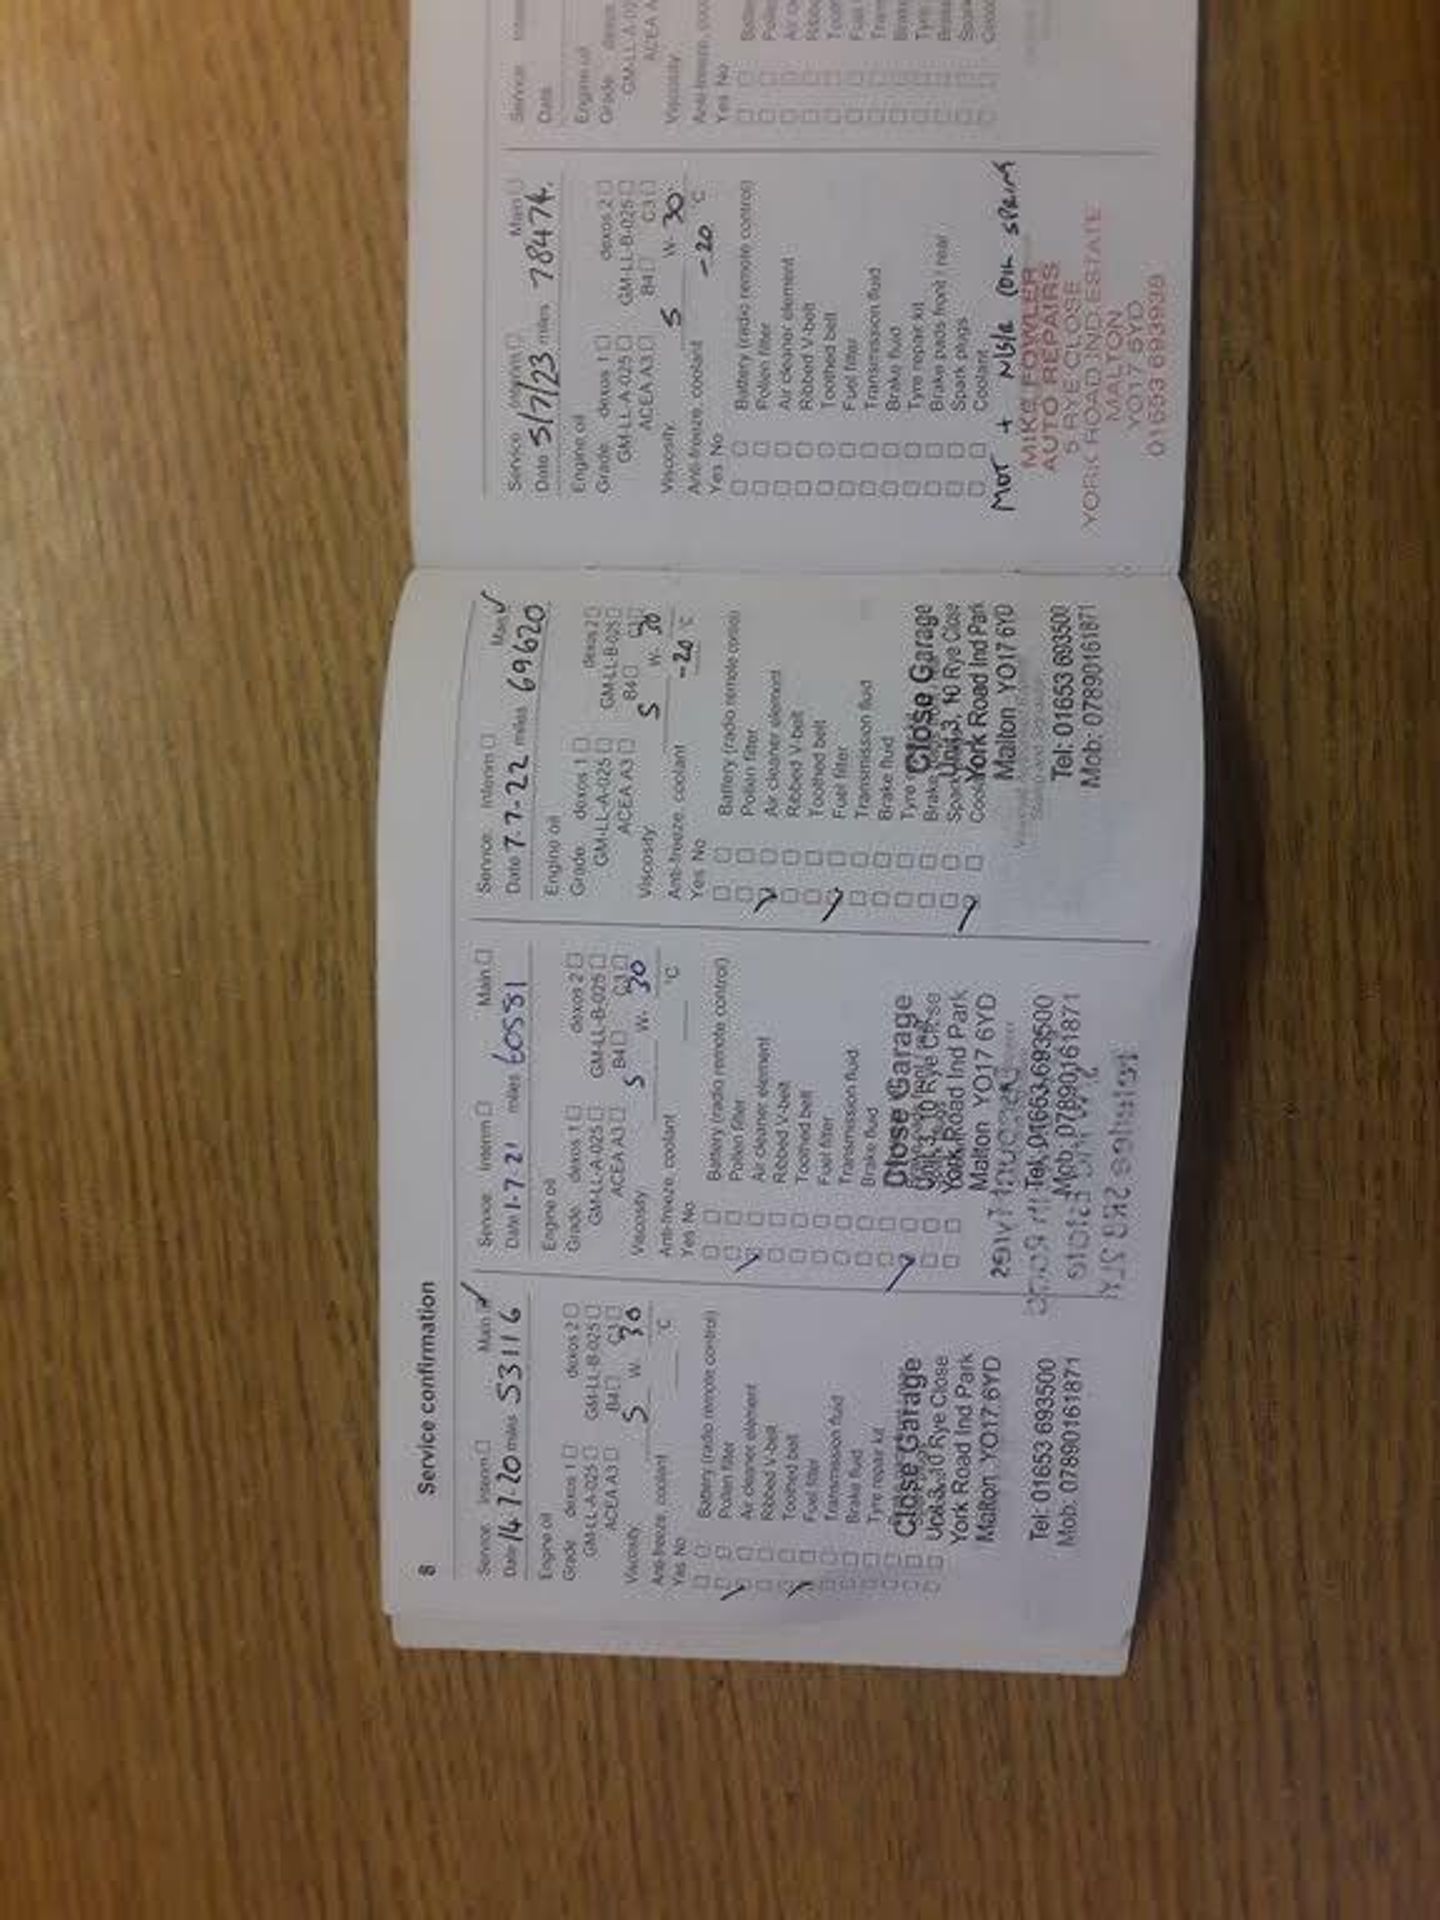 8 Service confirmation
Service: Interim Main
Date 14-7-20 miles 53116
Engine oil
Grade dexos 1 dexos 2
GM-LL-A-025 GM-LL-B-025
ACEA A3 B4 C3
Viscosity 5 W- 30
Anti-freeze, coolant °C
Yes No
Battery (radio remote control)
Pollen filter
Air cleaner element
Ribbed V-belt
Toothed belt
Fuel filter
Transmission fluid
Brake fluid
Tyre repair kit
Close Garage
Unit 3, 10 Rye Close
York Road Ind Park
Malton YO17 6YD
Tel: 01653 693500
Mob: 07890161871
Service: Interim Main
Date 1-7-21 miles 60581
Engine oil
Grade dexos 1 dexos 2
GM-LL-A-025 GM-LL-B-025
ACEA A3 B4 C3
Viscosity 5 W- 30
Anti-freeze, coolant °C
Yes No
Battery (radio remote control)
Pollen filter
Air cleaner element
Ribbed V-belt
Toothed belt
Fuel filter
Transmission fluid
Brake fluid
Close Garage
Unit 3, 10 Rye Close
York Road Ind Park
Malton YO17 6YD
Tel: 01653 693500
Mob: 07890161871
Service: Interim Main
Date 7-7-22 miles 69620
Engine oil
Grade dexos 1 dexos 2
GM-LL-A-025 GM-LL-B-025
ACEA A3 B4 C3
Viscosity 5 W- 30
Anti-freeze, coolant -20 °C
Yes No
Battery (radio remote control)
Pollen filter
Air cleaner element
Ribbed V-belt
Toothed belt
Fuel filter
Transmission fluid
Brake fluid
Tyre
Brake
Close Garage
Unit 3, 10 Rye Close
York Road Ind Park
Malton YO17 6YD
Tel: 01653 693500
Mob: 07890161871
Service Interim Main
Date 5/7/23 miles 78474
Engine oil
Grade dexos 1 dexos 2
GM-LL-A-025 GM-LL-B-025
ACEA A3 B4 C3
Viscosity 5 W- 30
Anti-freeze, coolant -20 °C
Yes No
Battery (radio remote control)
Pollen filter
Air cleaner element
Ribbed V-belt
Toothed belt
Fuel filter
Transmission fluid
Brake fluid
Tyre repair kit
Brake pads front / rear
Spark plugs
Coolant
MOT + NS/R COIL SPRING
MIKE FOWLER
AUTO REPAIRS
5 RYE CLOSE
YORK ROAD IND ESTATE
MALTON
YO17 6YD
01653 693939
Service
Date
Engine oil
Grade dexos
GM-LL-A-02
ACEA A
Viscosity
Anti-freeze, coo
Yes No